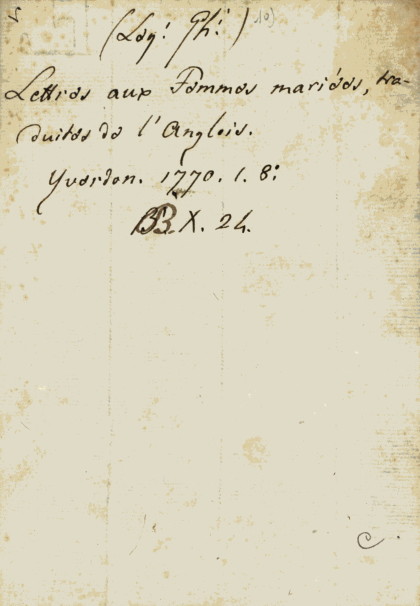 (Log: Ph:) 10)
Lettres aux Femmes mariées, tra-
duites de l'Anglois.
Yverdon. 1770. 1. 8:
BB. X. 24.
C.